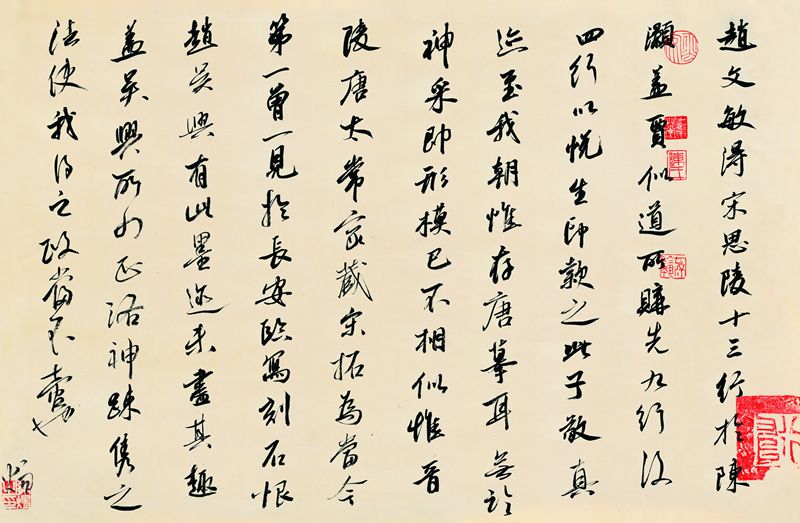 趙文敏得宋思陵十三行於陳
灝蓋賈似道所購先九行後
四行以悅生印款之此子敬真
迹至我朝惟存唐摹耳無論
神采即形模已不相似惟晉
陵唐太常家藏宋拓為當今
第一曾一見於長安臨寫刻石恨
趙吳興有此墨迹未盡其趣
蓋吳興所少正洛神疎雋之
法使我得之故當不啻也